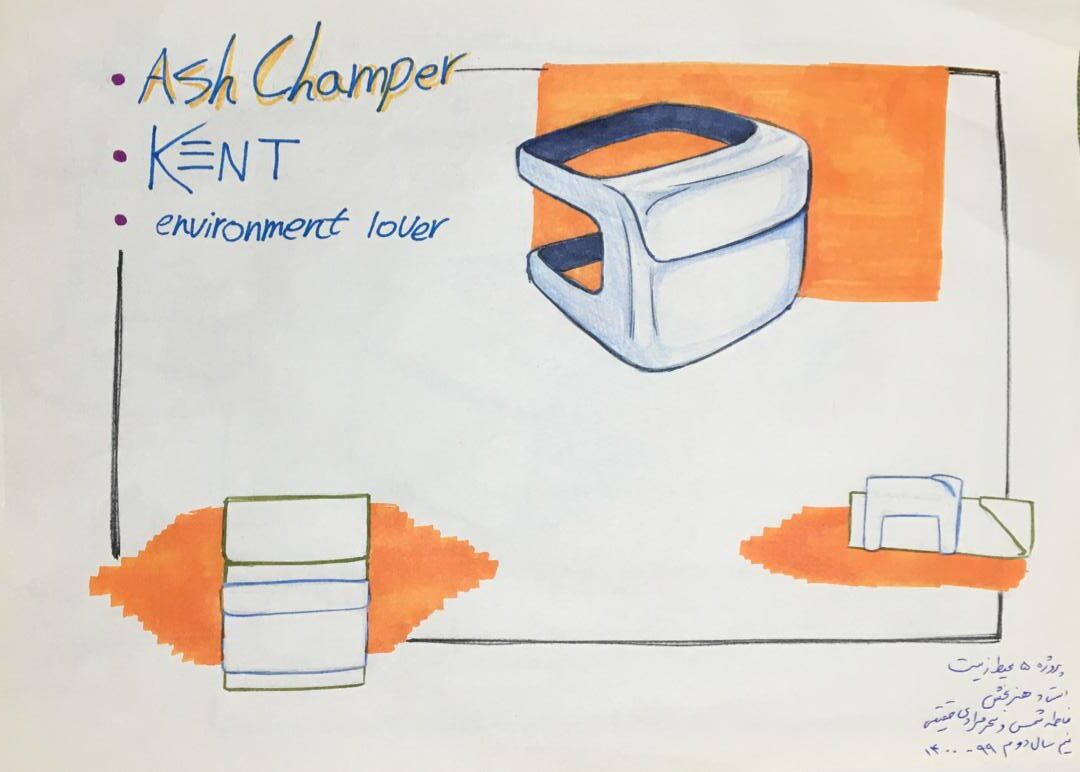 Ash Champer
KENT
environment lover
پروژه ۵ محیط زیست
استاد هنربخش
فاطمه شمس و
نیم سال دوم ۹۹-۱۴۰۰